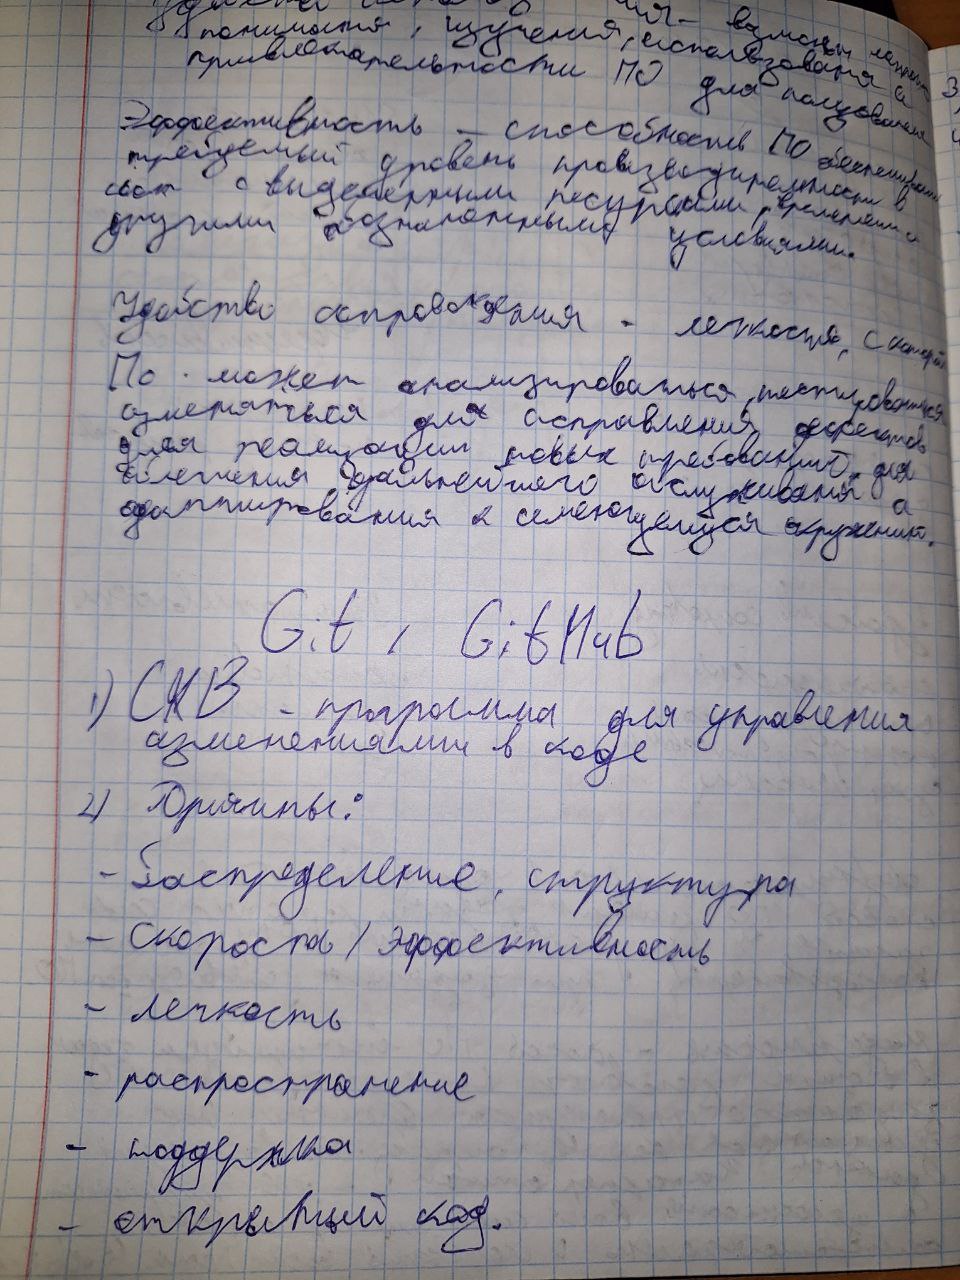 понимания, изучения, использования и
привлекательности ПО для пользования
Эффективность – способность ПО обеспечивать
требуемый уровень производительности в
с выделенными ресурсами, временем и
другими обозначенными условиями.
Удобство сопровождения - легкость, с которой
ПО может анализироваться, тестироваться
изменяться для исправления дефектов
для реализации новых требований, для
облегчения дальнейшего обслуживания и
адаптирования к окружению.
Git, GitHub
1) СКВ - программа для управления
изменениями в коде
2) Причины:
- Распределение, структура
- скорость / эффективность
- легкость
- распространение
- поддержка
- открытый код.